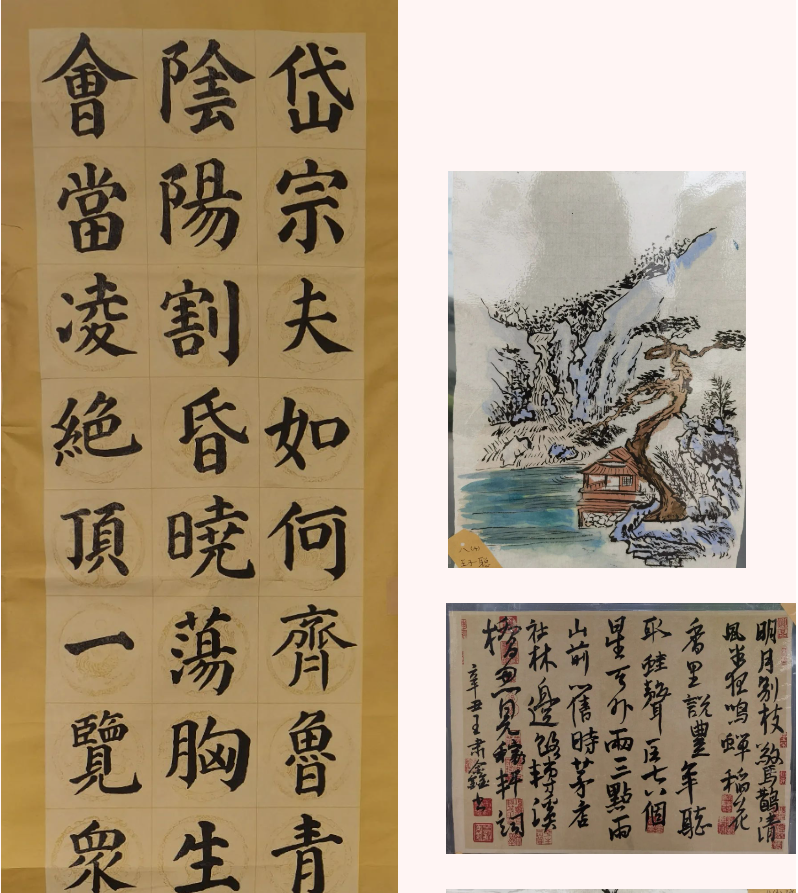 岱宗夫如何齊魯青
陰陽割昏曉蕩胸生
會當凌絶頂一覽衆
明月別枝驚鵲清
風半夜鳴蟬稻花
香里說豐年聽
取蛙聲一片七八個
星天外兩三點雨
山前舊時茅店
社林邊路轉溪
橋忽見稼軒詞
辛丑王肅鑫書